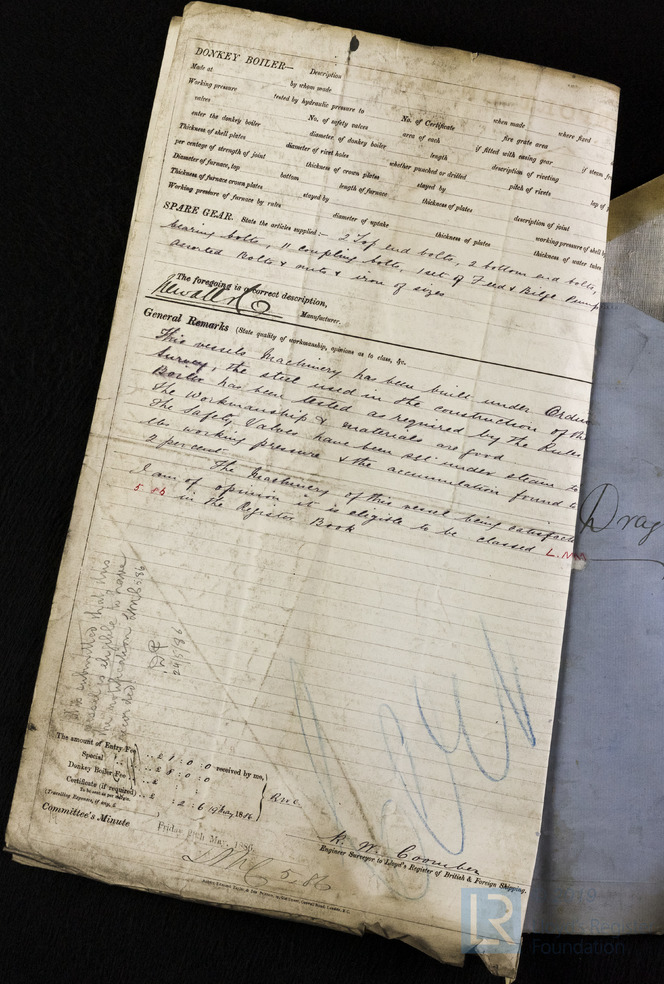 DONKEY BOILER— Description
Made at by whom made when made where fixed
Working pressure tested by hydraulic pressure to No. of Certificate fire grate area
valves No. of safety valves area of each if fitted with easing gear if steam
enter the donkey boiler diameter of donkey boiler length description of riveting
Thickness of shell plates diameter of rivet holes whether punched or drilled pitch of rivets lap of
per centage of strength of joint thickness of crown plates stayed by
Diameter of furnace, top bottom length of furnace thickness of plates description of joint
Thickness of furnace crown plates stayed by working pressure of shell
Working pressure of furnace by rules diameter of uptake thickness of plates thickness of water tubes
SPARE GEAR. State the articles supplied:— 2 Top end bolts, 2 bottom end bolts,
bearing bolts, 11 coupling bolts, 1 set of Feed & Bilge Pump
assorted Bolts & nuts & iron of sizes
The foregoing is a correct description,
Manufacturer.
General Remarks (State quality of workmanship, opinions as to class, &c.
This vessels Machinery has been built under
Survey, the steel used in the construction of the
Boiler has been tested as required by the Rules
The Workmanship & materials are good
The Safety Valves have been set under steam to
lbs working pressure & the accumulation found to
2 percent
The Machinery of this vessel being
I am of opinion it is eligible to be classed L.M
5.86 in the Register Book
Drag
It is submitted that this
vessel is eligible to have
the notification LMC 5.86
recorded
The amount of Entry Fee £ 1 : 0 : 0 received by me,
Special £ : 0 : 0
Donkey Boiler Fee £ : :
Certificate (if required) £ : 2 : 6 19 May 1886
To be sent as per margin.
(Travelling Expenses, if any, £
Committee's Minute
Friday May, 1886.
LMC 5.86
R. W. Coomber
Engineer Surveyor to Lloyd's Register of British & Foreign Shipping.
LR
Foundation